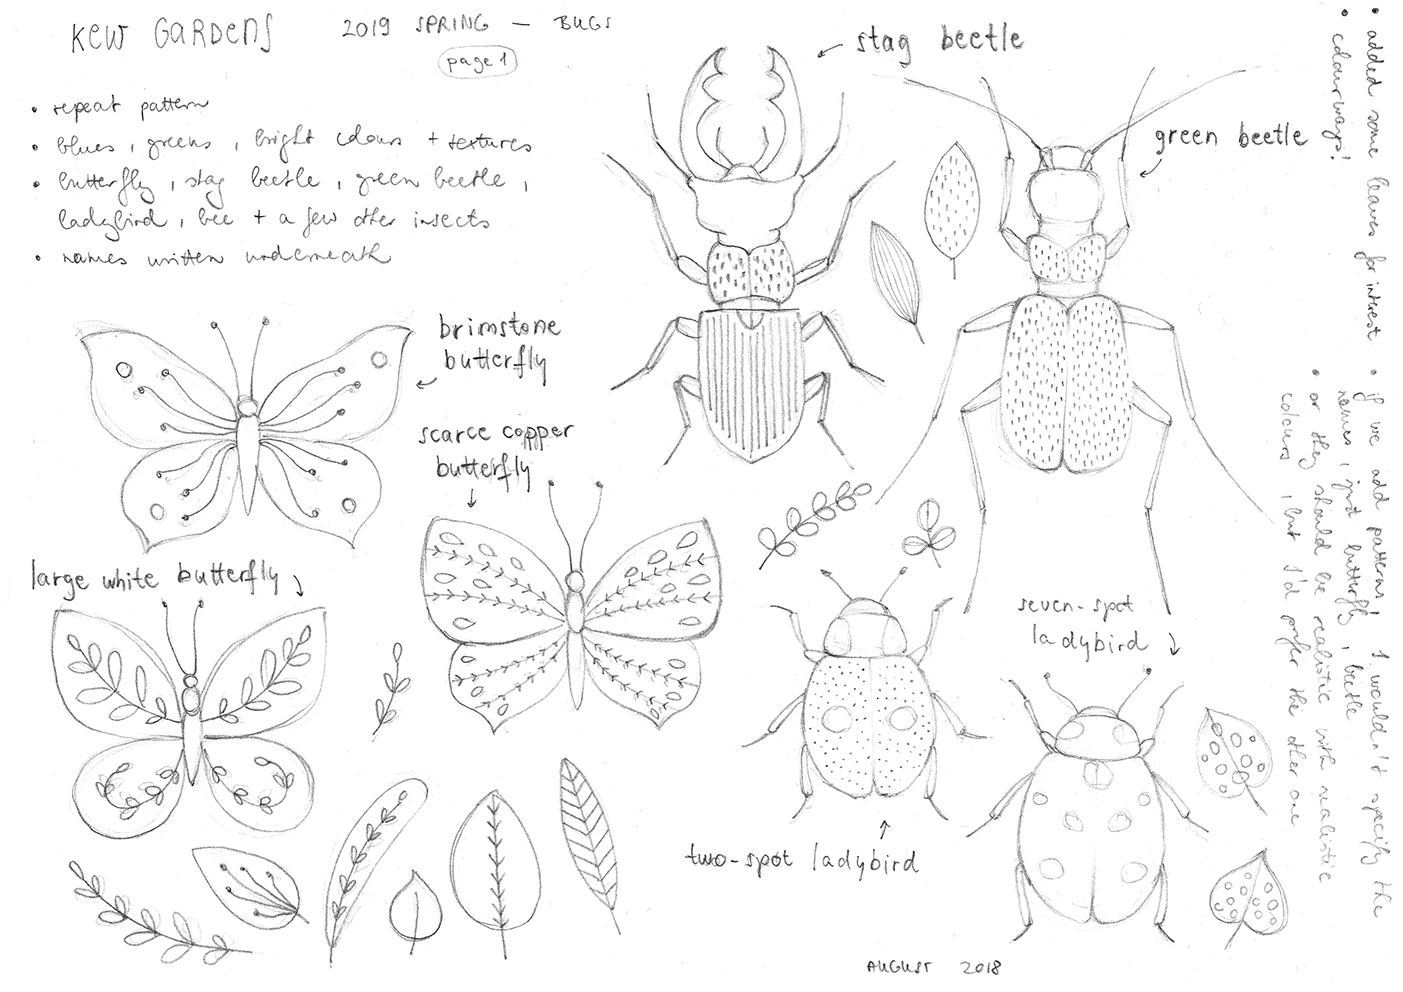 Kew Gardens
2019 SPRING — BUGS
page 1
• repeat pattern
• blues, greens, bright colours + textures
• butterfly, stag beetle, green beetle,
ladybird, bee + a few other insects
• names written underneath
stag beetle
green beetle
brimstone
butterfly
scarce copper
butterfly
large white butterfly
seven-spot
ladybird
two-spot ladybird
AUGUST 2018
• added some leaves for interest
• colourways!
• if we add patterns, I wouldn't specify the
names, just butterfly, beetle
• or they should be realistic with realistic
colours, but I'd prefer the other one